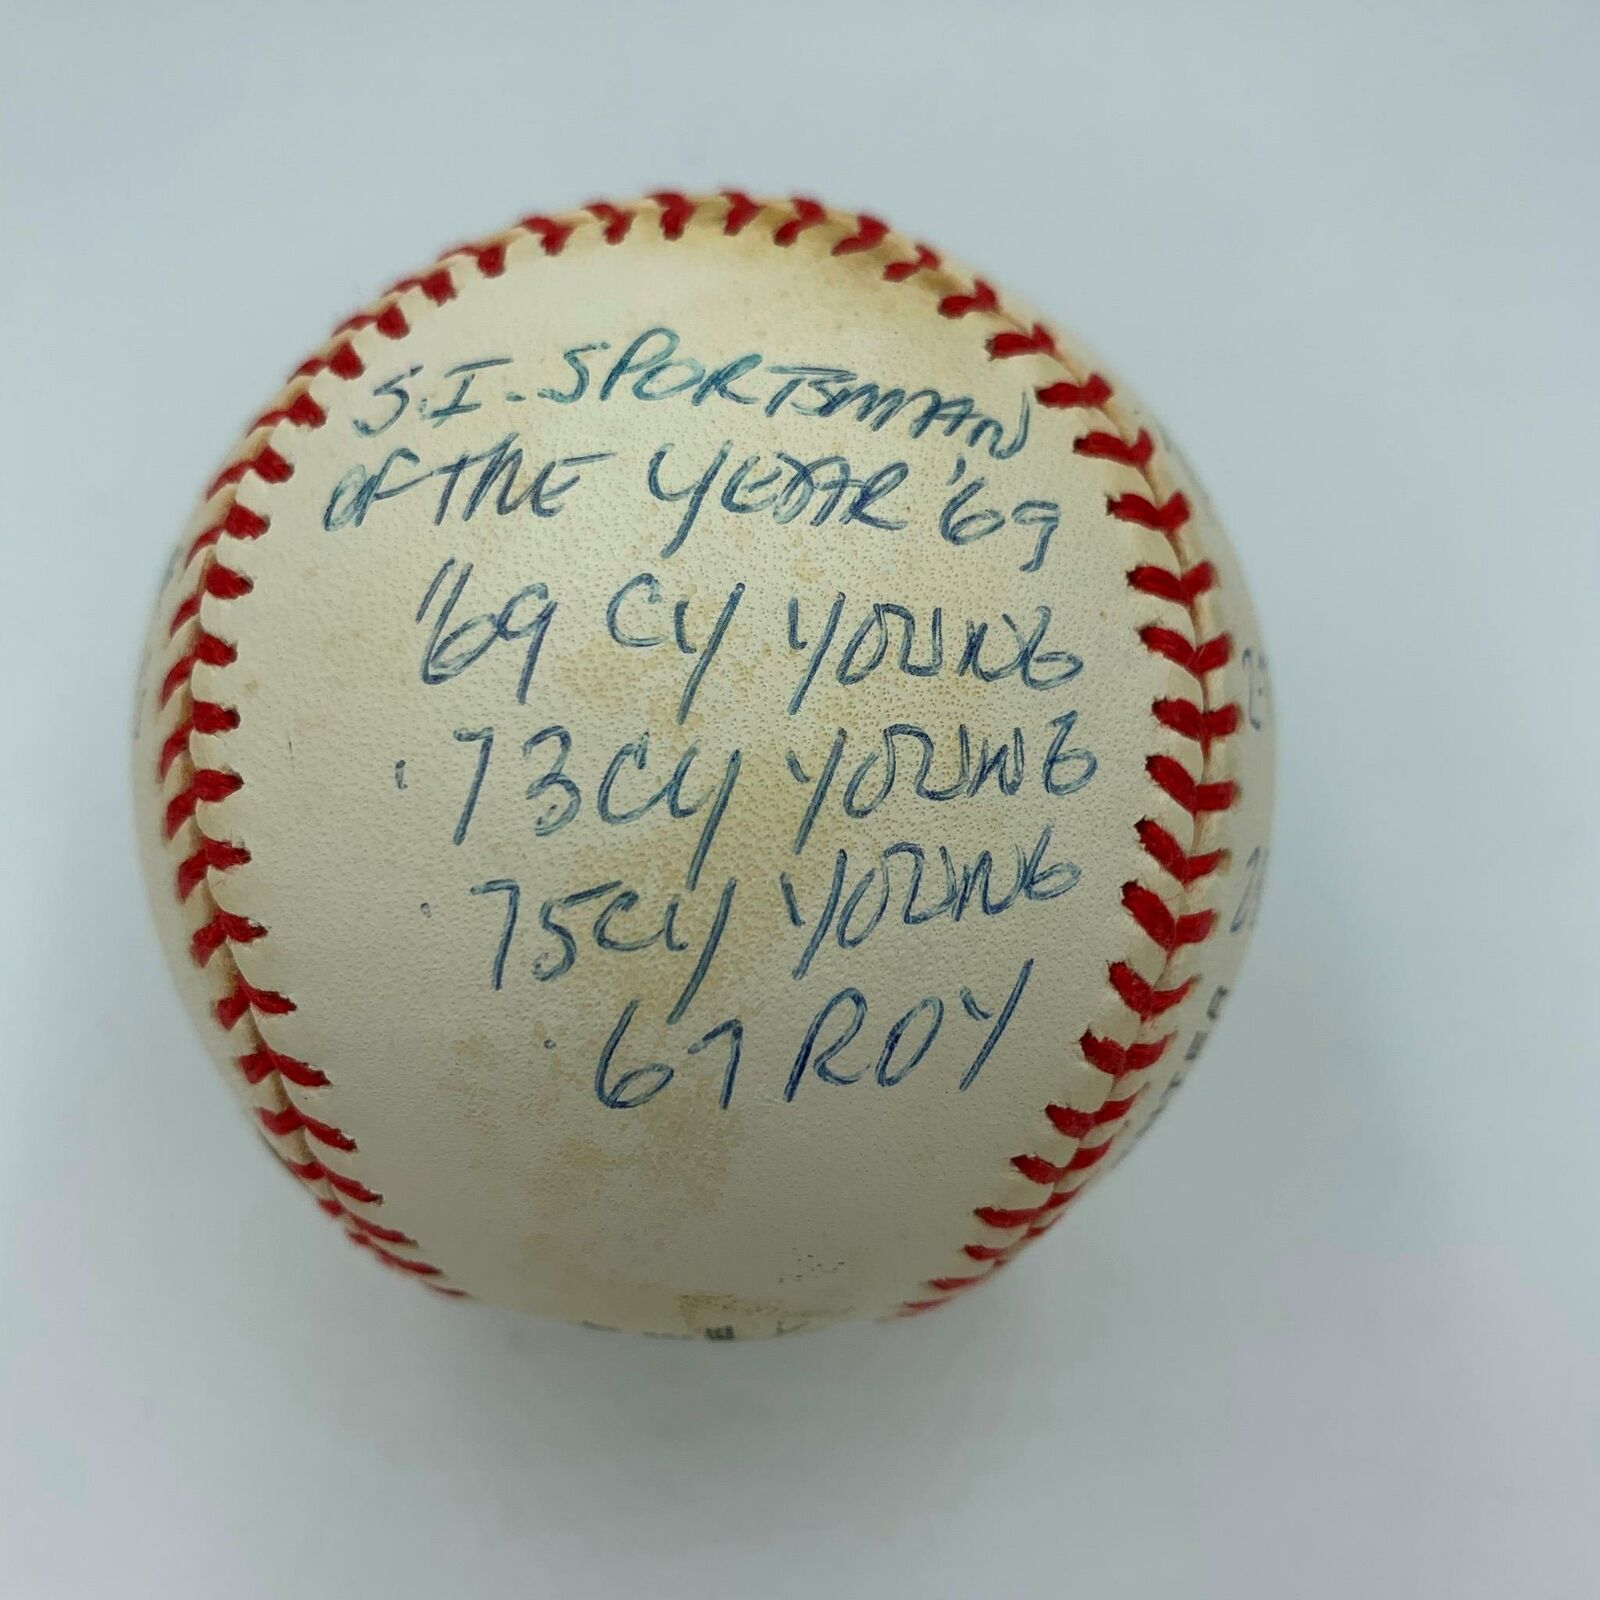 S.I. SPORTSMAN
OF THE YEAR '69
'69 CY YOUNG
'73 CY YOUNG
'75 CY YOUNG
'67 ROY